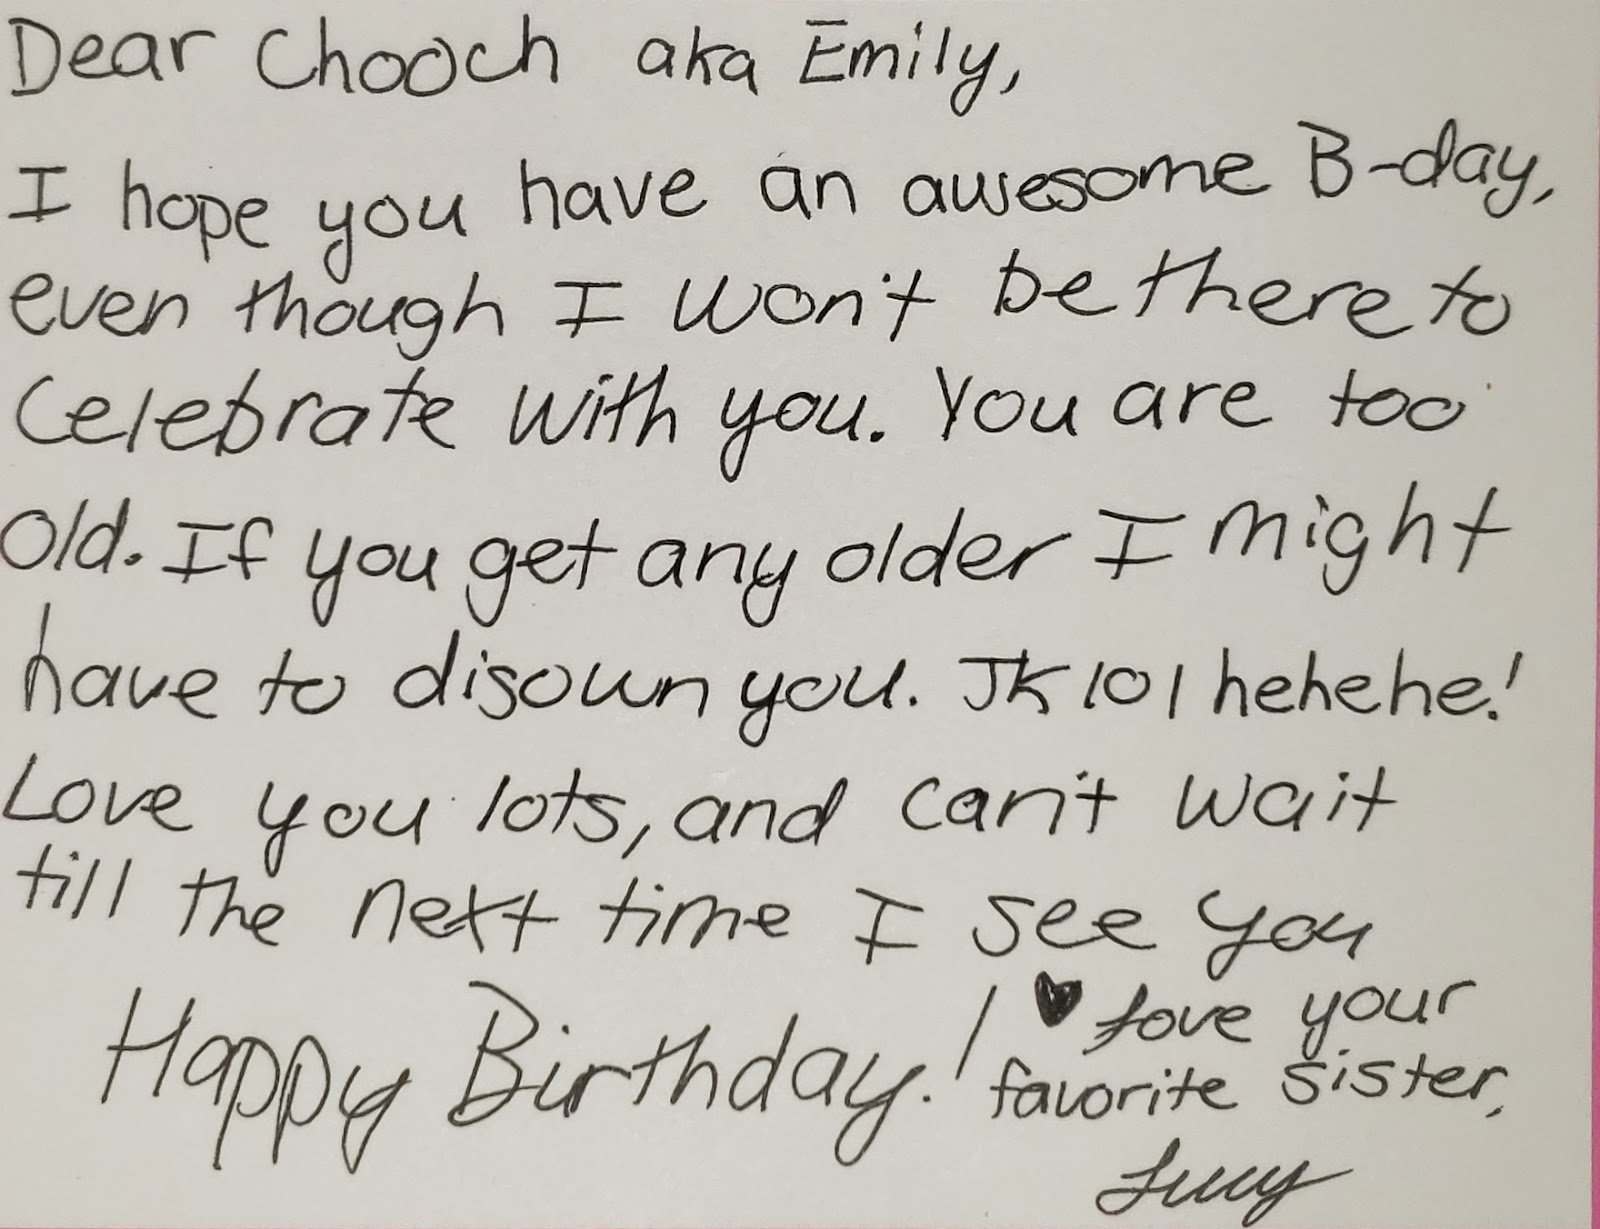 Dear Chooch aka Emily,
I hope you have an awesome B-day,
even though I won't be there to
celebrate with you. You are too
old. If you get any older I might
have to disown you. JK lol hehehe!
Love you lots, and can't wait
till the next time I see you
Happy Birthday! ♥ Love your
favorite sister,
Lucy